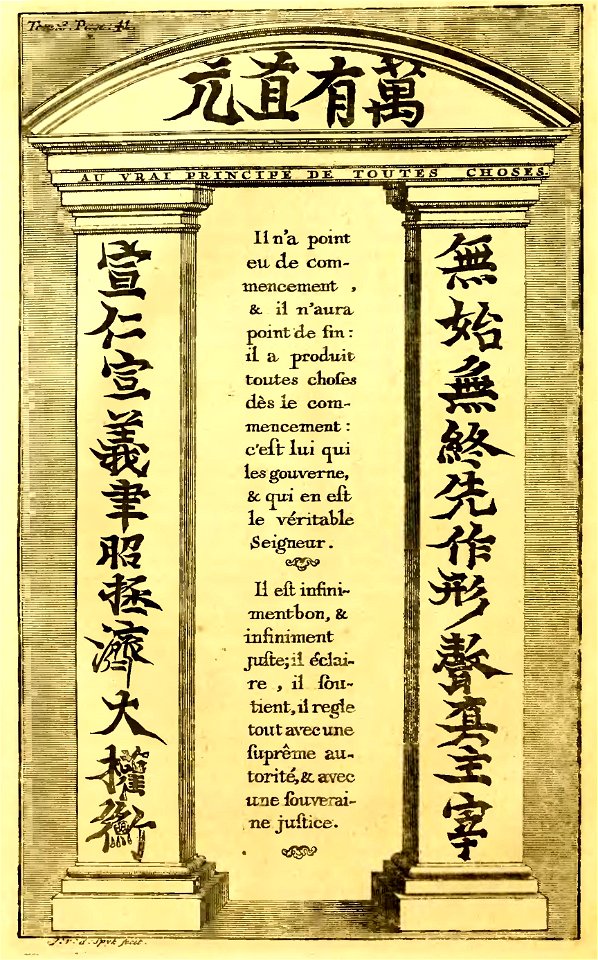 Tom. 2. Page. 41.
萬有直元
AU VRAI PRINCIPE DE TOUTES CHOSES.
無始無終先作形聲真主宰
宣仁宣義聿昭拯濟大權衡
Il n'a point
eu de com-
mencement ,
& il n'aura
point de fin :
il a produit
toutes choſes
dès le com-
mencement :
c'eſt lui qui
les gouverne,
& qui en eſt
le véritable
Seigneur .
Il eſt infini-
ment bon, &
infiniment
juſte; il éclai-
re , il ſou-
tient, il regle
tout avec une
ſuprême au-
torité, & avec
une ſouverai-
ne juſtice .
J. v. d. Spyk fecit.